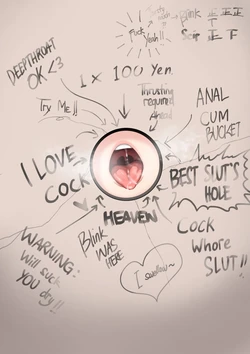 Fuck
Yeah!!
Blink 正正
T
Scp 正下
DEEPTHROAT
OK <3
1 x 100 Yen.
Try Me!!
Thrusting
required
Ahead
ANAL
CUM
BUCKET
I LOVE
COCK
BEST SLUT'S
HOLE
HEAVEN
Blink
WAS
HERE
Cock
Whore
SLUT!!
WARNING:
Will suck
YOU dry!!
I swallow~